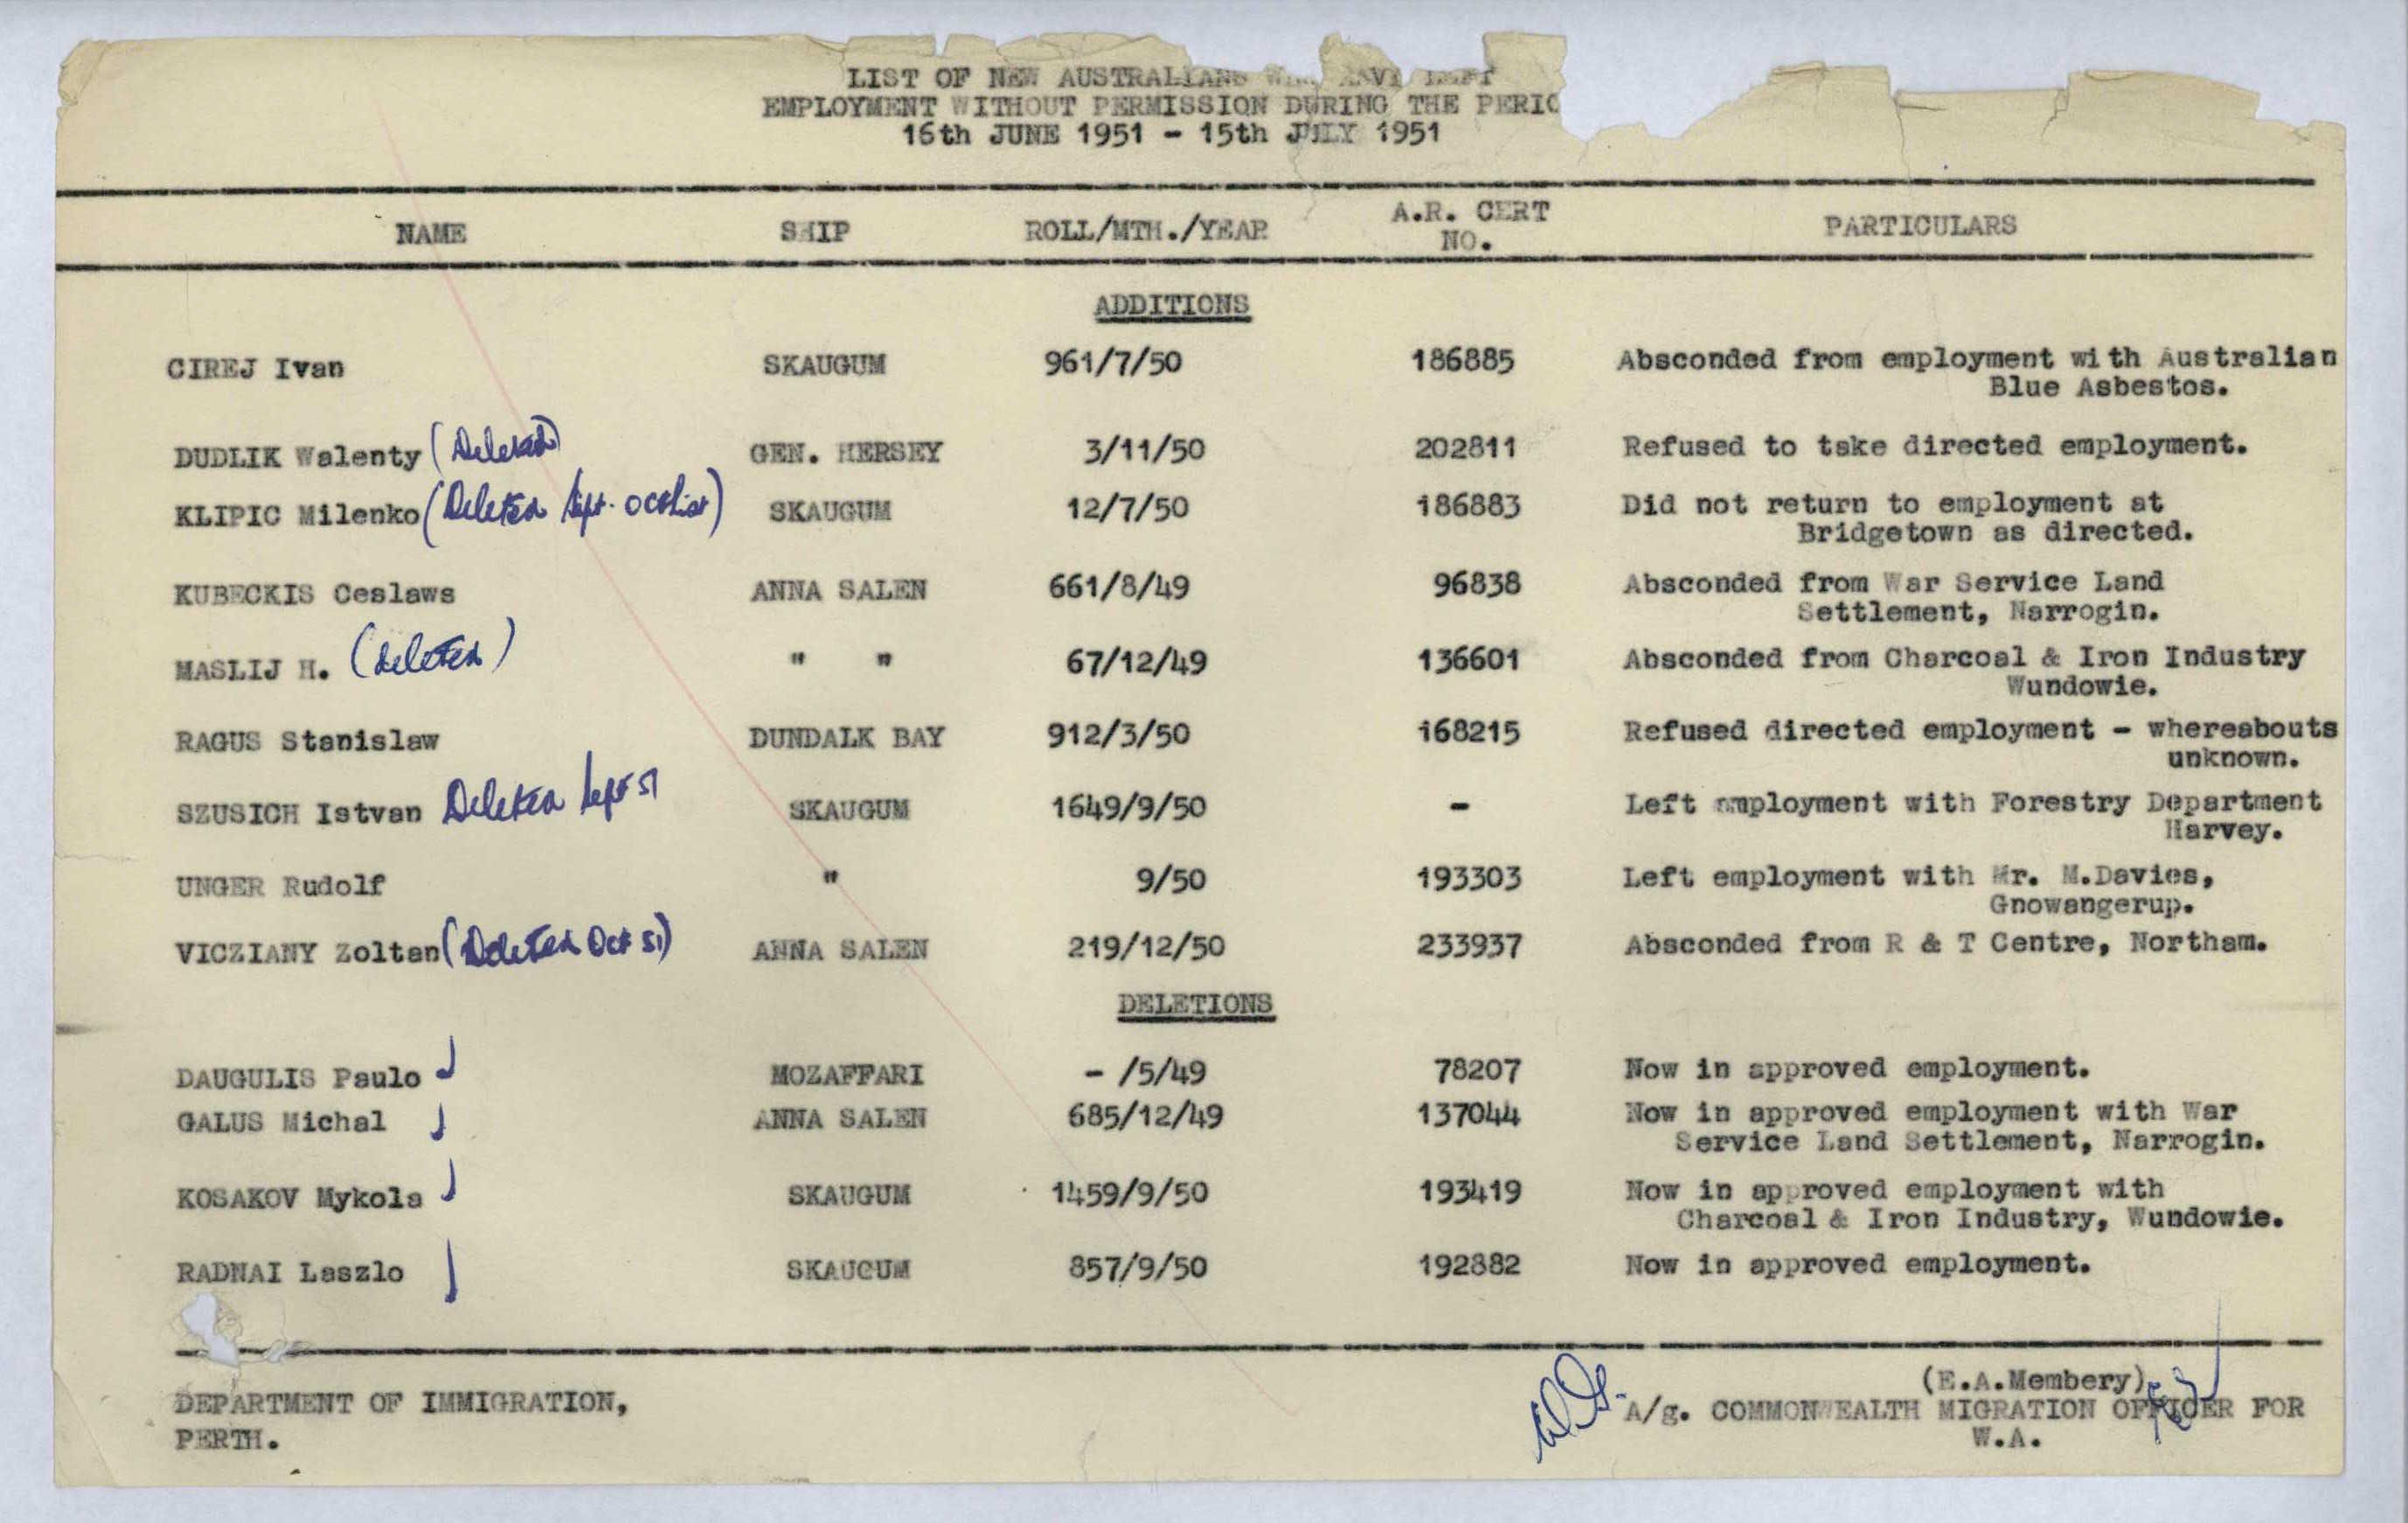 LIST OF NEW AUSTRALIANS LEFT
EMPLOYMENT WITHOUT PERMISSION DURING THE PERIO
16th JUNE 1951 - 15th JULY 1951
NAME SHIP ROLL/MTH./YEAR A.R. CERT NO. PARTICULARS
ADDITIONS
CIREJ Ivan SKAUGUM 961/7/50 186885 Absconded from employment with Australian
Blue Asbestos.
DUDLIK Walenty (Deleted) GEN. HERSEY 3/11/50 202811 Refused to take directed employment.
KLIPIC Milenko (Deleted Sept. Oct List) SKAUGUM 12/7/50 186883 Did not return to employment at
Bridgetown as directed.
KUBECKIS Ceslaws ANNA SALEN 661/8/49 96838 Absconded from War Service Land
Settlement, Narrogin.
MASLIJ H. (Deleted) " " 67/12/49 136601 Absconded from Charcoal & Iron Industry
Wundowie.
RAGUS Stanislaw DUNDALK BAY 912/3/50 168215 Refused directed employment - whereabouts
unknown.
SZUSICH Istvan Deleted Sept 51 SKAUGUM 1649/9/50 - Left employment with Forestry Department
Harvey.
UNGER Rudolf " 9/50 193303 Left employment with Mr. M.Davies,
Gnowangerup.
VICZIANY Zoltan (Deleted Oct 51) ANNA SALEN 219/12/50 233937 Absconded from R & T Centre, Northam.
DELETIONS
DAUGULIS Paulo MOZAFFARI - /5/49 78207 Now in approved employment.
GALUS Michal ANNA SALEN 685/12/49 137044 Now in approved employment with War
Service Land Settlement, Narrogin.
KOSAKOV Mykola SKAUGUM 1459/9/50 193419 Now in approved employment with
Charcoal & Iron Industry, Wundowie.
RADNAI Laszlo SKAUGUM 857/9/50 192882 Now in approved employment.
(E.A.Membery)
DEPARTMENT OF IMMIGRATION, A/g. COMMONWEALTH MIGRATION OFFICER FOR
PERTH. W.A.